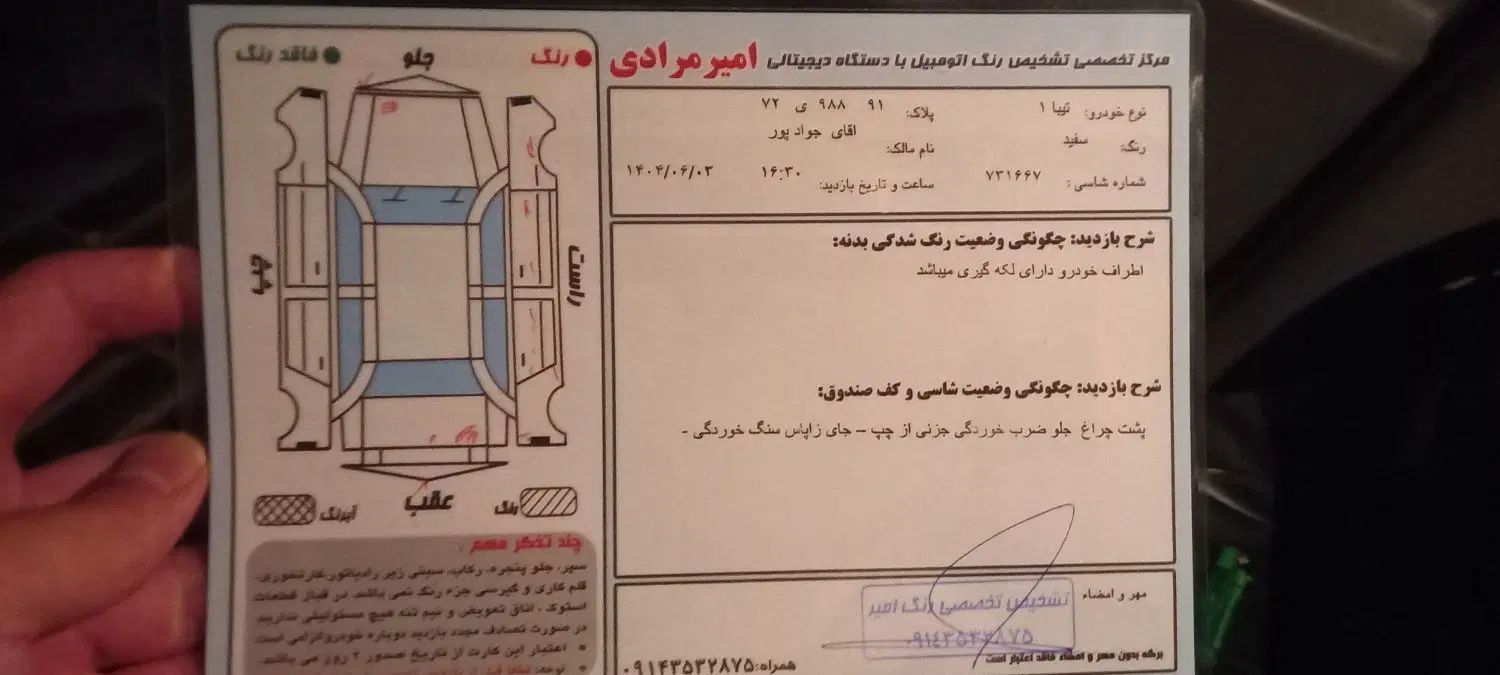 مرکز تخصصی تشخیص رنگ اتومبیل با دستگاه دیجیتالی امیرمرادی
نوع خودرو: تیبا ۱
پلاک: ۹۱ ۹۸۸ ی ۷۲
رنگ: سفید
نام مالک: اقای جواد پور
شماره شاسی: ۷۳۱۶۶۷
ساعت و تاریخ بازدید: ۱۶:۳۰ ۱۴۰۴/۰۶/۰۳
شرح بازدید: چگونگی وضعیت رنگ شدگی بدنه:
اطراف خودرو دارای لکه گیری میباشد
شرح بازدید: چگونگی وضعیت شاسی و کف صندوق:
پشت چراغ جلو ضرب خوردگی جزئی از چپ – جای زاپاس سنگ خوردگی -
مهر و امضاء
تشخیص تخصصی رنگ امیر
۰۹۱۴۳۵۳۲۸۷۵
برگه بدون مهر و امضاء فاقد اعتبار است
همراه: ۰۹۱۴۳۵۳۲۸۷۵
رنگ
فاقد رنگ
جلو
راست
چپ
عقب
رنگ
آبرنگ
چند تذکر مهم:
سپر، جلو پنجره، رکاب، سینی زیر رادیاتور،
قلم کاری و گیرسی جزء رنگ نمی باشد. در قبال قطعات
استوک، اتاق تعویض و نیم تنه هیچ مسئولیتی نداریم
در صورت تصادف مجدد بازدید دوباره خودرو الزامی است
اعتبار این کارت از تاریخ صدور ۲ روز می باشد.
توجه: